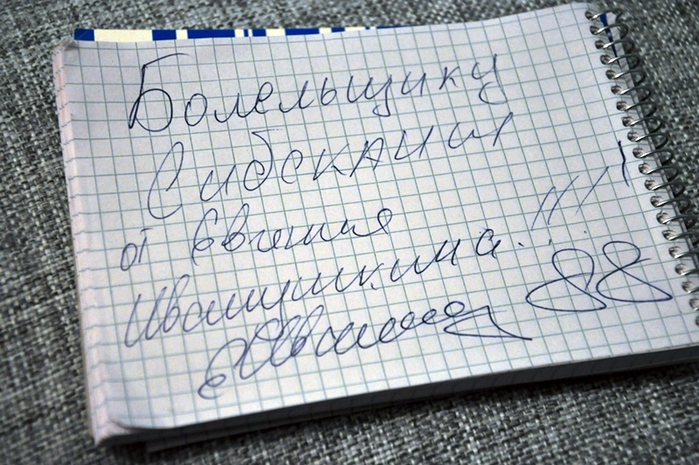 Болельщику
Сибскании
от Евгения
Иванушкина!!!!!
88